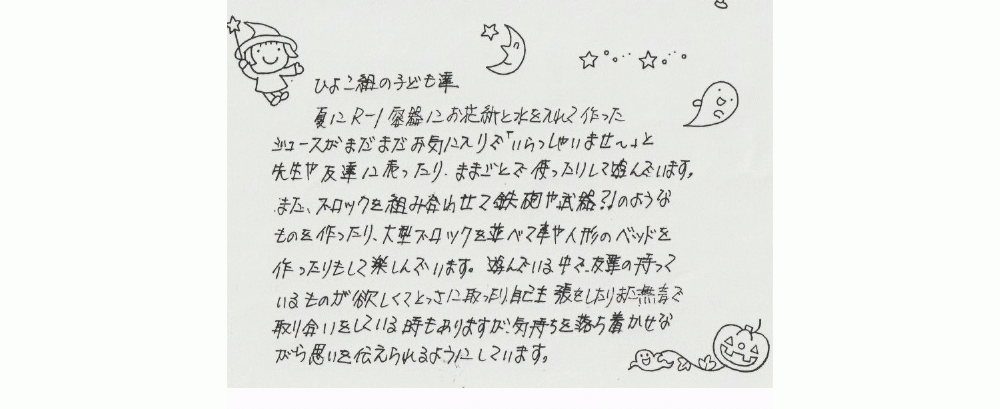 ひよこ組の子ども達
夏にR-1容器にお花紙と水を入れて作った
ジュースがまだまだお気に入りで「いらっしゃいませ～」と
先生や友達に売ったり、ままごとで使ったりして遊んでいます。
また、ブロックを組み合わせて鉄砲や武器?!のような
ものを作ったり、大型ブロックを並べて車や人形のベッドを
作ったりもして楽しんでいます。遊んでいる中で、友達の持って
いるものが欲しくてとっさに取ったり自己主張をしたりまた無言で
取り合いをしている時もありますが、気持ちを落ち着かせな
がら思いを伝えられるようにしています。